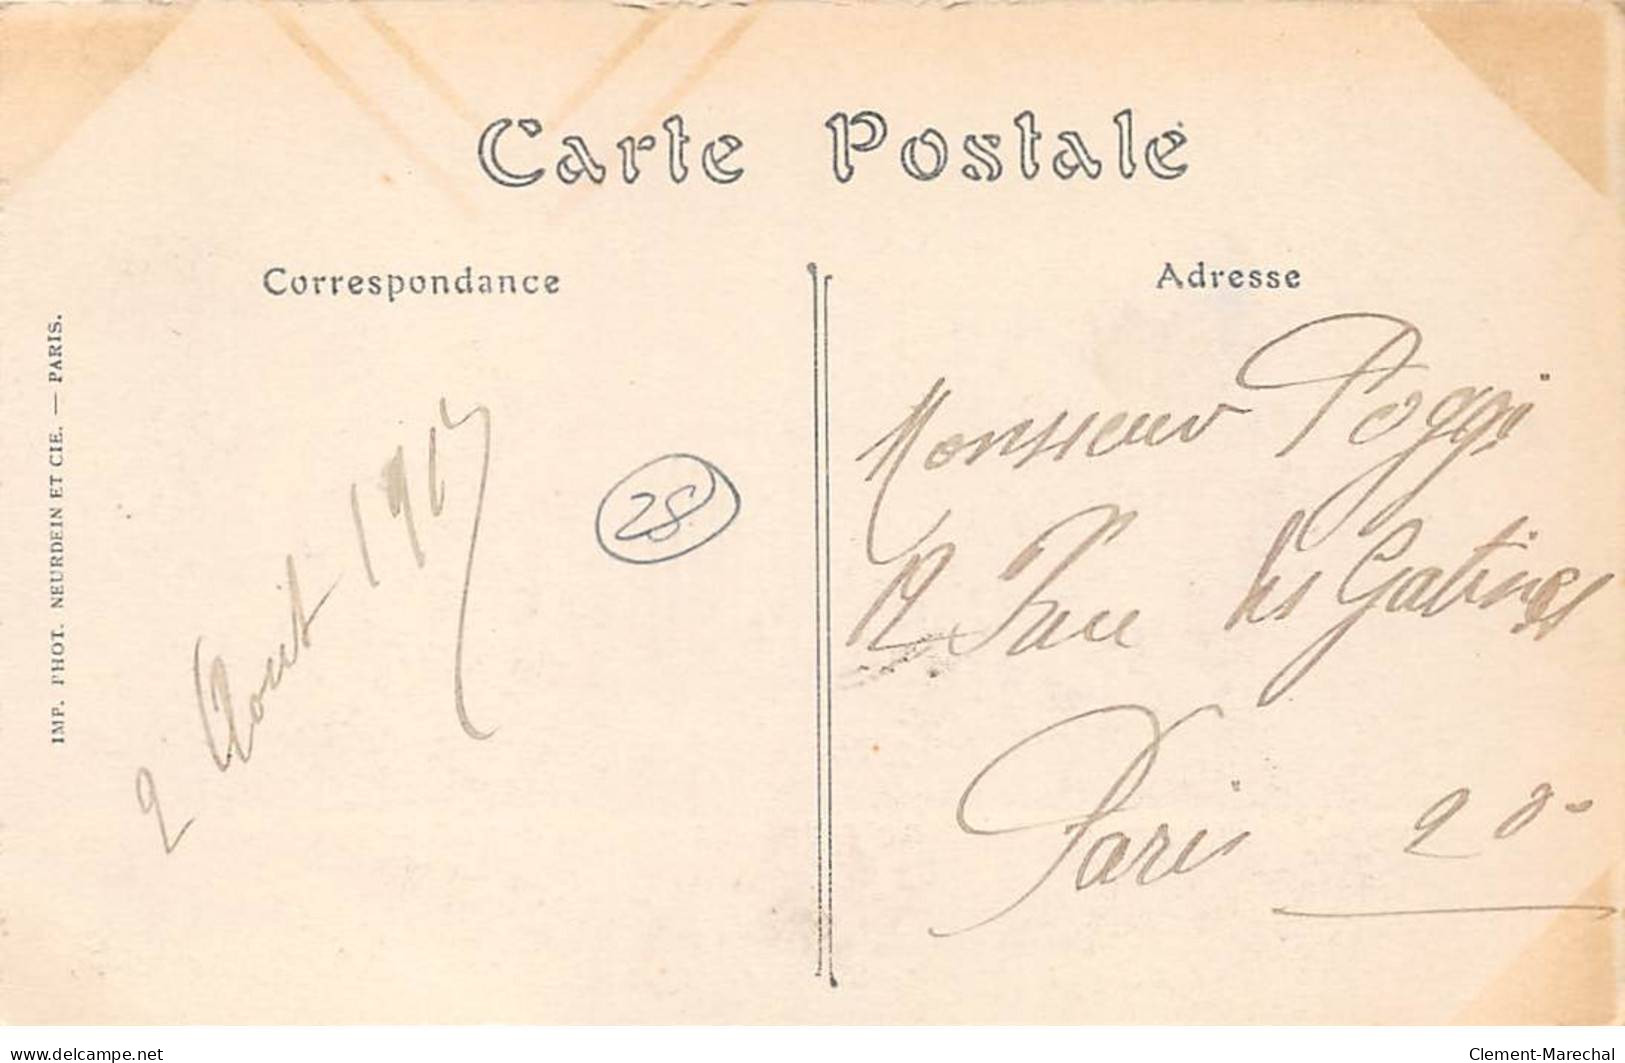 Carte Postale
Correspondance
Adresse
IMP. PHOT. NEURDEIN ET CIE. — PARIS.
2 Aout 1917
28
Monsieur Poggi
12 Rue les Gatines
Paris 20
delcampe.net
Clement-Marechal